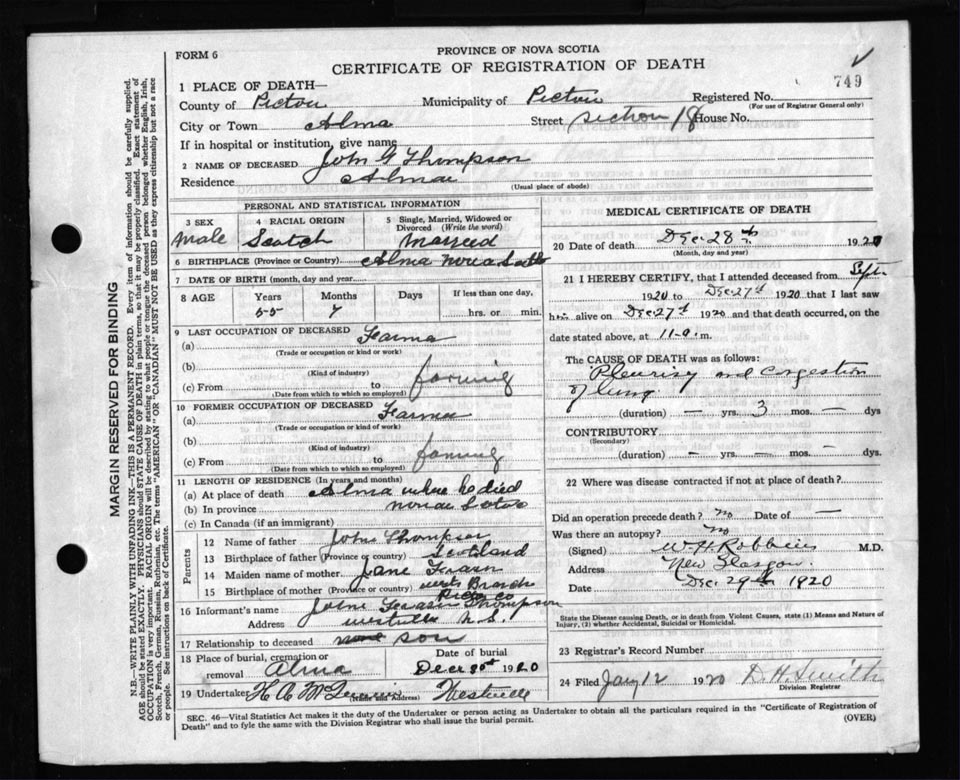 PROVINCE OF NOVA SCOTIA
FORM 6
CERTIFICATE OF REGISTRATION OF DEATH
749
1 PLACE OF DEATH—
County of Pictou Municipality of Pictou Registered No.
(For use of Registrar General only)
City or Town Alma Street Section 18 House No.
If in hospital or institution, give name
2 NAME OF DECEASED John G Thompson
Residence Alma
(Usual place of abode)
PERSONAL AND STATISTICAL INFORMATION
3 SEX Male
4 RACIAL ORIGIN Scotch
5 Single, Married, Widowed or Divorced (Write the word) Married
6 BIRTHPLACE (Province or Country) Alma nova Scotia
7 DATE OF BIRTH (month, day and year)
8 AGE Years Months Days If less than one day,
55 7 hrs. or min.
9 LAST OCCUPATION OF DECEASED
(a) Farma
(Trade or occupation or kind or work)
(b)
(Kind of industry)
(c) From to farming
(Date from which to which so employed)
10 FORMER OCCUPATION OF DECEASED
(a) Farma
(Trade or occupation or kind of work)
(b)
(Kind of industry)
(c) From to farming
(Date from which to which so employed)
11 LENGTH OF RESIDENCE (In years and months)
(a) At place of death Alma where he died
(b) In province
(c) In Canada (if an immigrant)
Parents
12 Name of father John Thompson
13 Birthplace of father (Province or country) Scotland
14 Maiden name of mother Jane Fraser
15 Birthplace of mother (Province or country) west Branch
Pictou co
16 Informant's name John Fraser Thompson
Address westville N.S.
17 Relationship to deceased son
18 Place of burial, cremation or removal Alma
Date of burial Decr 30st 1920
19 Undertaker (Name and Address) Westville
MEDICAL CERTIFICATE OF DEATH
20 Date of death Dec. 28th 1920
(Month, day and year)
21 I HEREBY CERTIFY, that I attended deceased from Sept
1920 to Dec 27th 1920 that I last saw
him alive on Dec 27th 1920 and that death occurred, on the
date stated above, at 11-a.m.
The CAUSE OF DEATH was as follows:
Pleurisy and Congestion
of lung
(duration) — yrs. 3 mos. — dys
CONTRIBUTORY
(Secondary)
(duration) — yrs. — mos. — dys
22 Where was disease contracted if not at place of death?
Did an operation precede death? no Date of —
Was there an autopsy? no
(Signed) W. H. Robbins M.D.
Address New Glasgow.
Date Dec. 29th 1920
State the Disease causing Death, or in death from Violent Causes, state (1) Means and Nature of
Injury, (2) whether Accidental, Suicidal or Homicidal.
23 Registrar's Record Number
24 Filed Jany 12 1920 D. H. Smith
Division Registrar
SEC. 46—Vital Statistics Act makes it the duty of the Undertaker or person acting as Undertaker to obtain all the particulars required in the "Certificate of Registration of
Death" and to fyle the same with the Division Registrar who shall issue the burial permit.
(OVER)
MARGIN RESERVED FOR BINDING
N.B.—WRITE PLAINLY WITH UNFADING INK—THIS IS A PERMANENT RECORD. Every item of information should be carefully supplied.
AGE should be stated EXACTLY. PHYSICIANS should STATE CAUSE OF DEATH in plain terms, so that it may be properly classified. Exact statement of
OCCUPATION is very important. RACIAL ORIGIN will be described by stating to what people or tongue the deceased person belonged whether English, Irish,
Scotch, French, German, Russian, Ruthenian, etc. The terms "AMERICAN" OR "CANADIAN" MUST NOT BE USED as they express citizenship but not a race
or people. See instructions on back of Certificate.